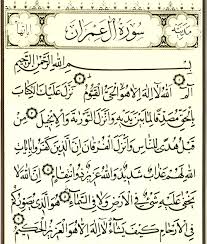 سُورَةُ آلِ عِمْرَانَ
بِسْمِ اللهِ الرَّحْمٰنِ الرَّحِيمِ
الٓمٓ ۝ اللهُ لَا إِلٰهَ إِلَّا هُوَ الْحَيُّ الْقَيُّومُ ۝ نَزَّلَ عَلَيْكَ الْكِتَابَ
بِالْحَقِّ مُصَدِّقًا لِمَا بَيْنَ يَدَيْهِ وَأَنْزَلَ التَّوْرَاةَ وَالْإِنْجِيلَ ۝ مِنْ
قَبْلُ هُدًى لِلنَّاسِ وَأَنْزَلَ الْفُرْقَانَ إِنَّ الَّذِينَ كَفَرُوا بِآيَاتِ
اللهِ لَهُمْ عَذَابٌ شَدِيدٌ وَاللهُ عَزِيزٌ ذُو انْتِقَامٍ ۝ إِنَّ اللهَ لَا
يَخْفَى عَلَيْهِ شَيْءٌ فِي الْأَرْضِ وَلَا فِي السَّمَاءِ ۝ هُوَ الَّذِي يُصَوِّرُكُمْ
فِي الْأَرْحَامِ كَيْفَ يَشَاءُ لَا إِلٰهَ إِلَّا هُوَ الْعَزِيزُ الْحَكِيمُ